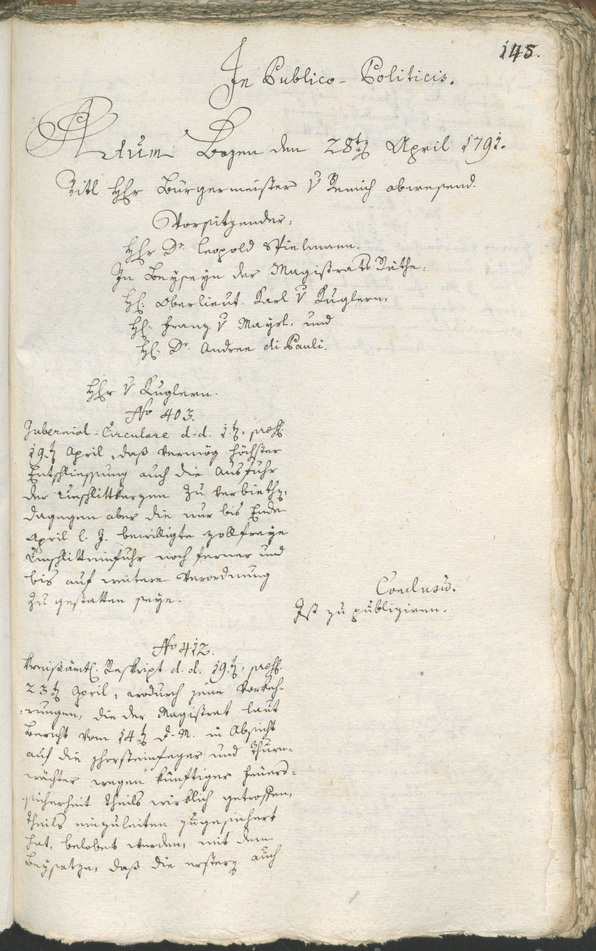 145.
In Publico-Politicis.
Actum Bozen den 28t April 1791.
Titl Hhr Bürgermeister v Remich abwesend.
Vorsitzender,
Hhr Dr. Leopold Spielmann.
In Beyseyn der Magistrats Räthe,
Hl. Oberlieut. Karl v Kuglern,
Hl. Franz v Mayrl, und
Hl. Dr. Andree di Pauli.
Hhr v Kuglern.
No 403.
Gubernial-Circulare d.d. 1t, pres.
19t April, daß vermög höchster
Entschliessung auch die Ausfuhr
der Unschlittkerzen zu verbiethen,
dagegen aber die nur bis Ende
April l. J. bewilligte zollfreye
Unschlitteinfuhr noch ferner und
bis auf weitere Verordnung
zu gestatten seye.
Conclusum.
Ist zu publiziren.
No 412.
Kreisämtl. Reskript d.d. 19t, pres.
23t April, wodurch jene Vorkeh-
rungen, die der Magistrat laut
Bericht vom 14t d. M. in Absicht
auf die Rauchfangfeger und Thurn-
wächter wegen künftiger Feuers-
sicherheit theils wirklich getroffen,
theils einzuleiten zugesichert
hat, belobet werden, mit dem
Beysatze, daß die erstern auch